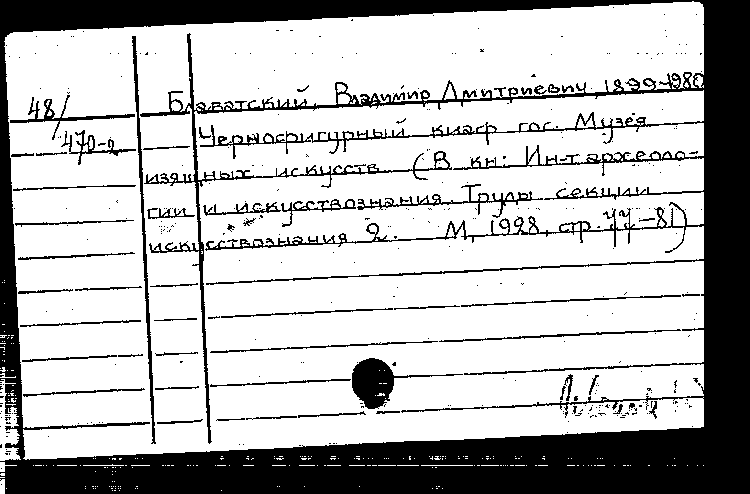 48/
470-2
Блаватский, Владимир Дмитриевич, 1899-1980
Чернофигурный киаф гос. Музея
изящных искусств (В кн: Ин-т археоло-
гии и искусствознания. Труды секции
искусствознания 2. М, 1928, стр. 77-81)